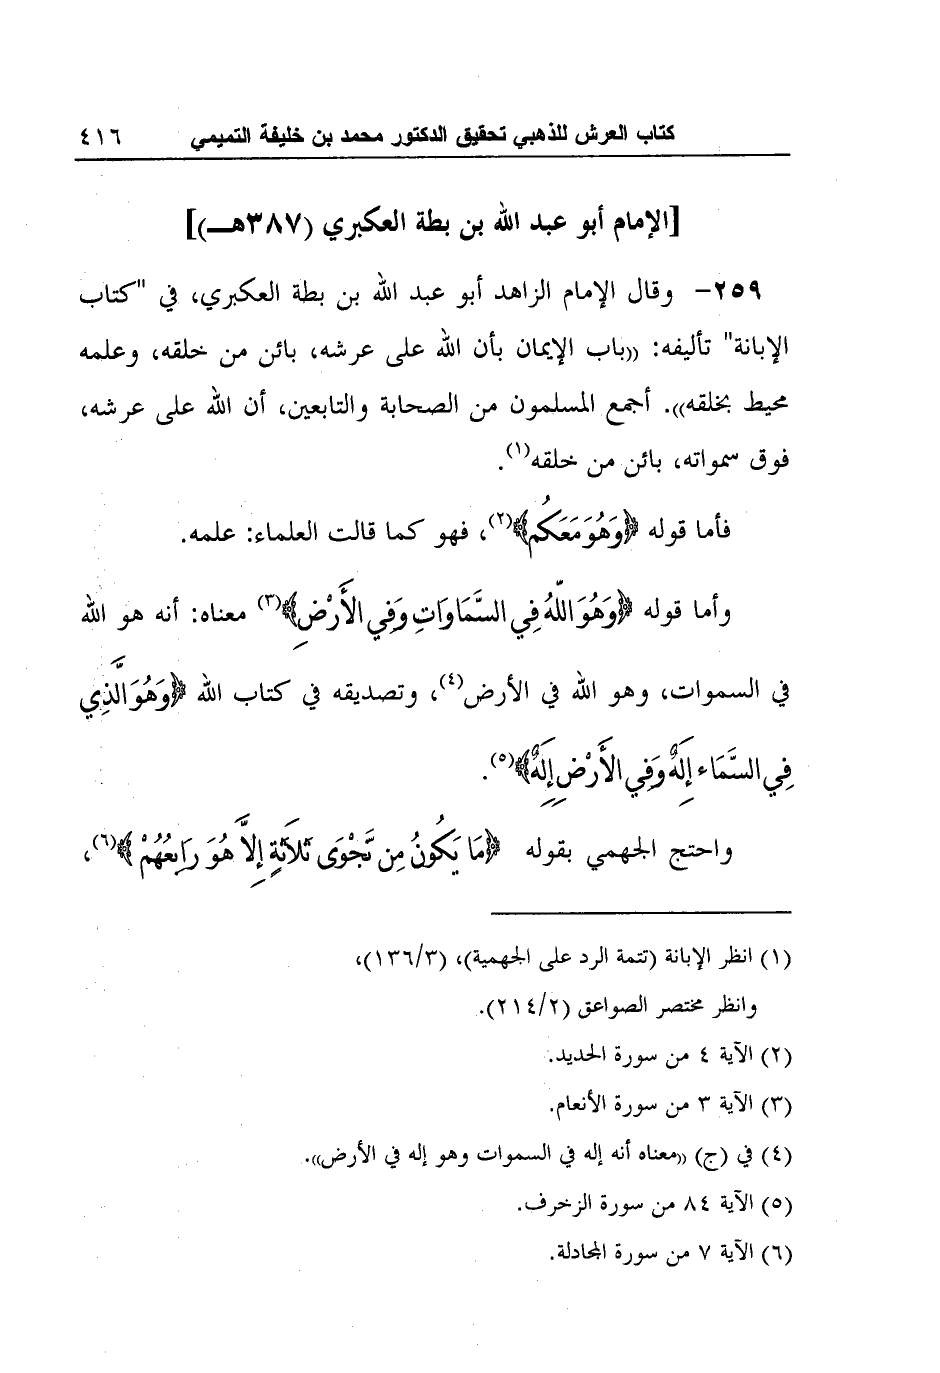 كتاب العرش للذهبي تحقيق الدكتور محمد بن خليفة التميمي ٤١٦
[الإمام أبو عبد الله بن بطة العكبري (٣٨٧هـ)]
٢٥٩- وقال الإمام الزاهد أبو عبد الله بن بطة العكبري، في "كتاب
الإبانة" تأليفه: ((باب الإيمان بأن الله على عرشه، بائن من خلقه، وعلمه
محيط بخلقه)). أجمع المسلمون من الصحابة والتابعين، أن الله على عرشه،
فوق سمواته، بائن من خلقه(١).
فأما قوله ﴿وَهُوَ مَعَكُم﴾(٢)، فهو كما قالت العلماء: علمه.
وأما قوله ﴿وَهُوَ اللّهُ فِي السَّمَاوَاتِ وَفِي الأَرْضِ﴾(٣) معناه: أنه هو الله
في السموات، وهو الله في الأرض(٤)، وتصديقه في كتاب الله ﴿وَهُوَ الَّذِي
فِي السَّمَاء إِلَهٌ وَفِي الأَرْضِ إِلَهٌ﴾(٥).
واحتج الجهمي بقوله ﴿مَا يَكُونُ مِن نَّجْوَى ثَلاَثَةٍ إِلاَّ هُوَ رَابِعُهُمْ﴾(٦)،
(١) انظر الإبانة (تتمة الرد على الجهمية)، (١٣٦/٣)،
وانظر مختصر الصواعق (٢١٤/٢).
(٢) الآية ٤ من سورة الحديد.
(٣) الآية ٣ من سورة الأنعام.
(٤) في (ج) ((معناه أنه إله في السموات وهو إله في الأرض)).
(٥) الآية ٨٤ من سورة الزخرف.
(٦) الآية ٧ من سورة المجادلة.